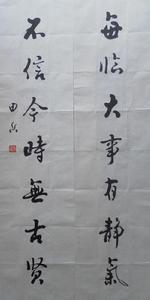 每临大事有静氣
不信今時無古贤